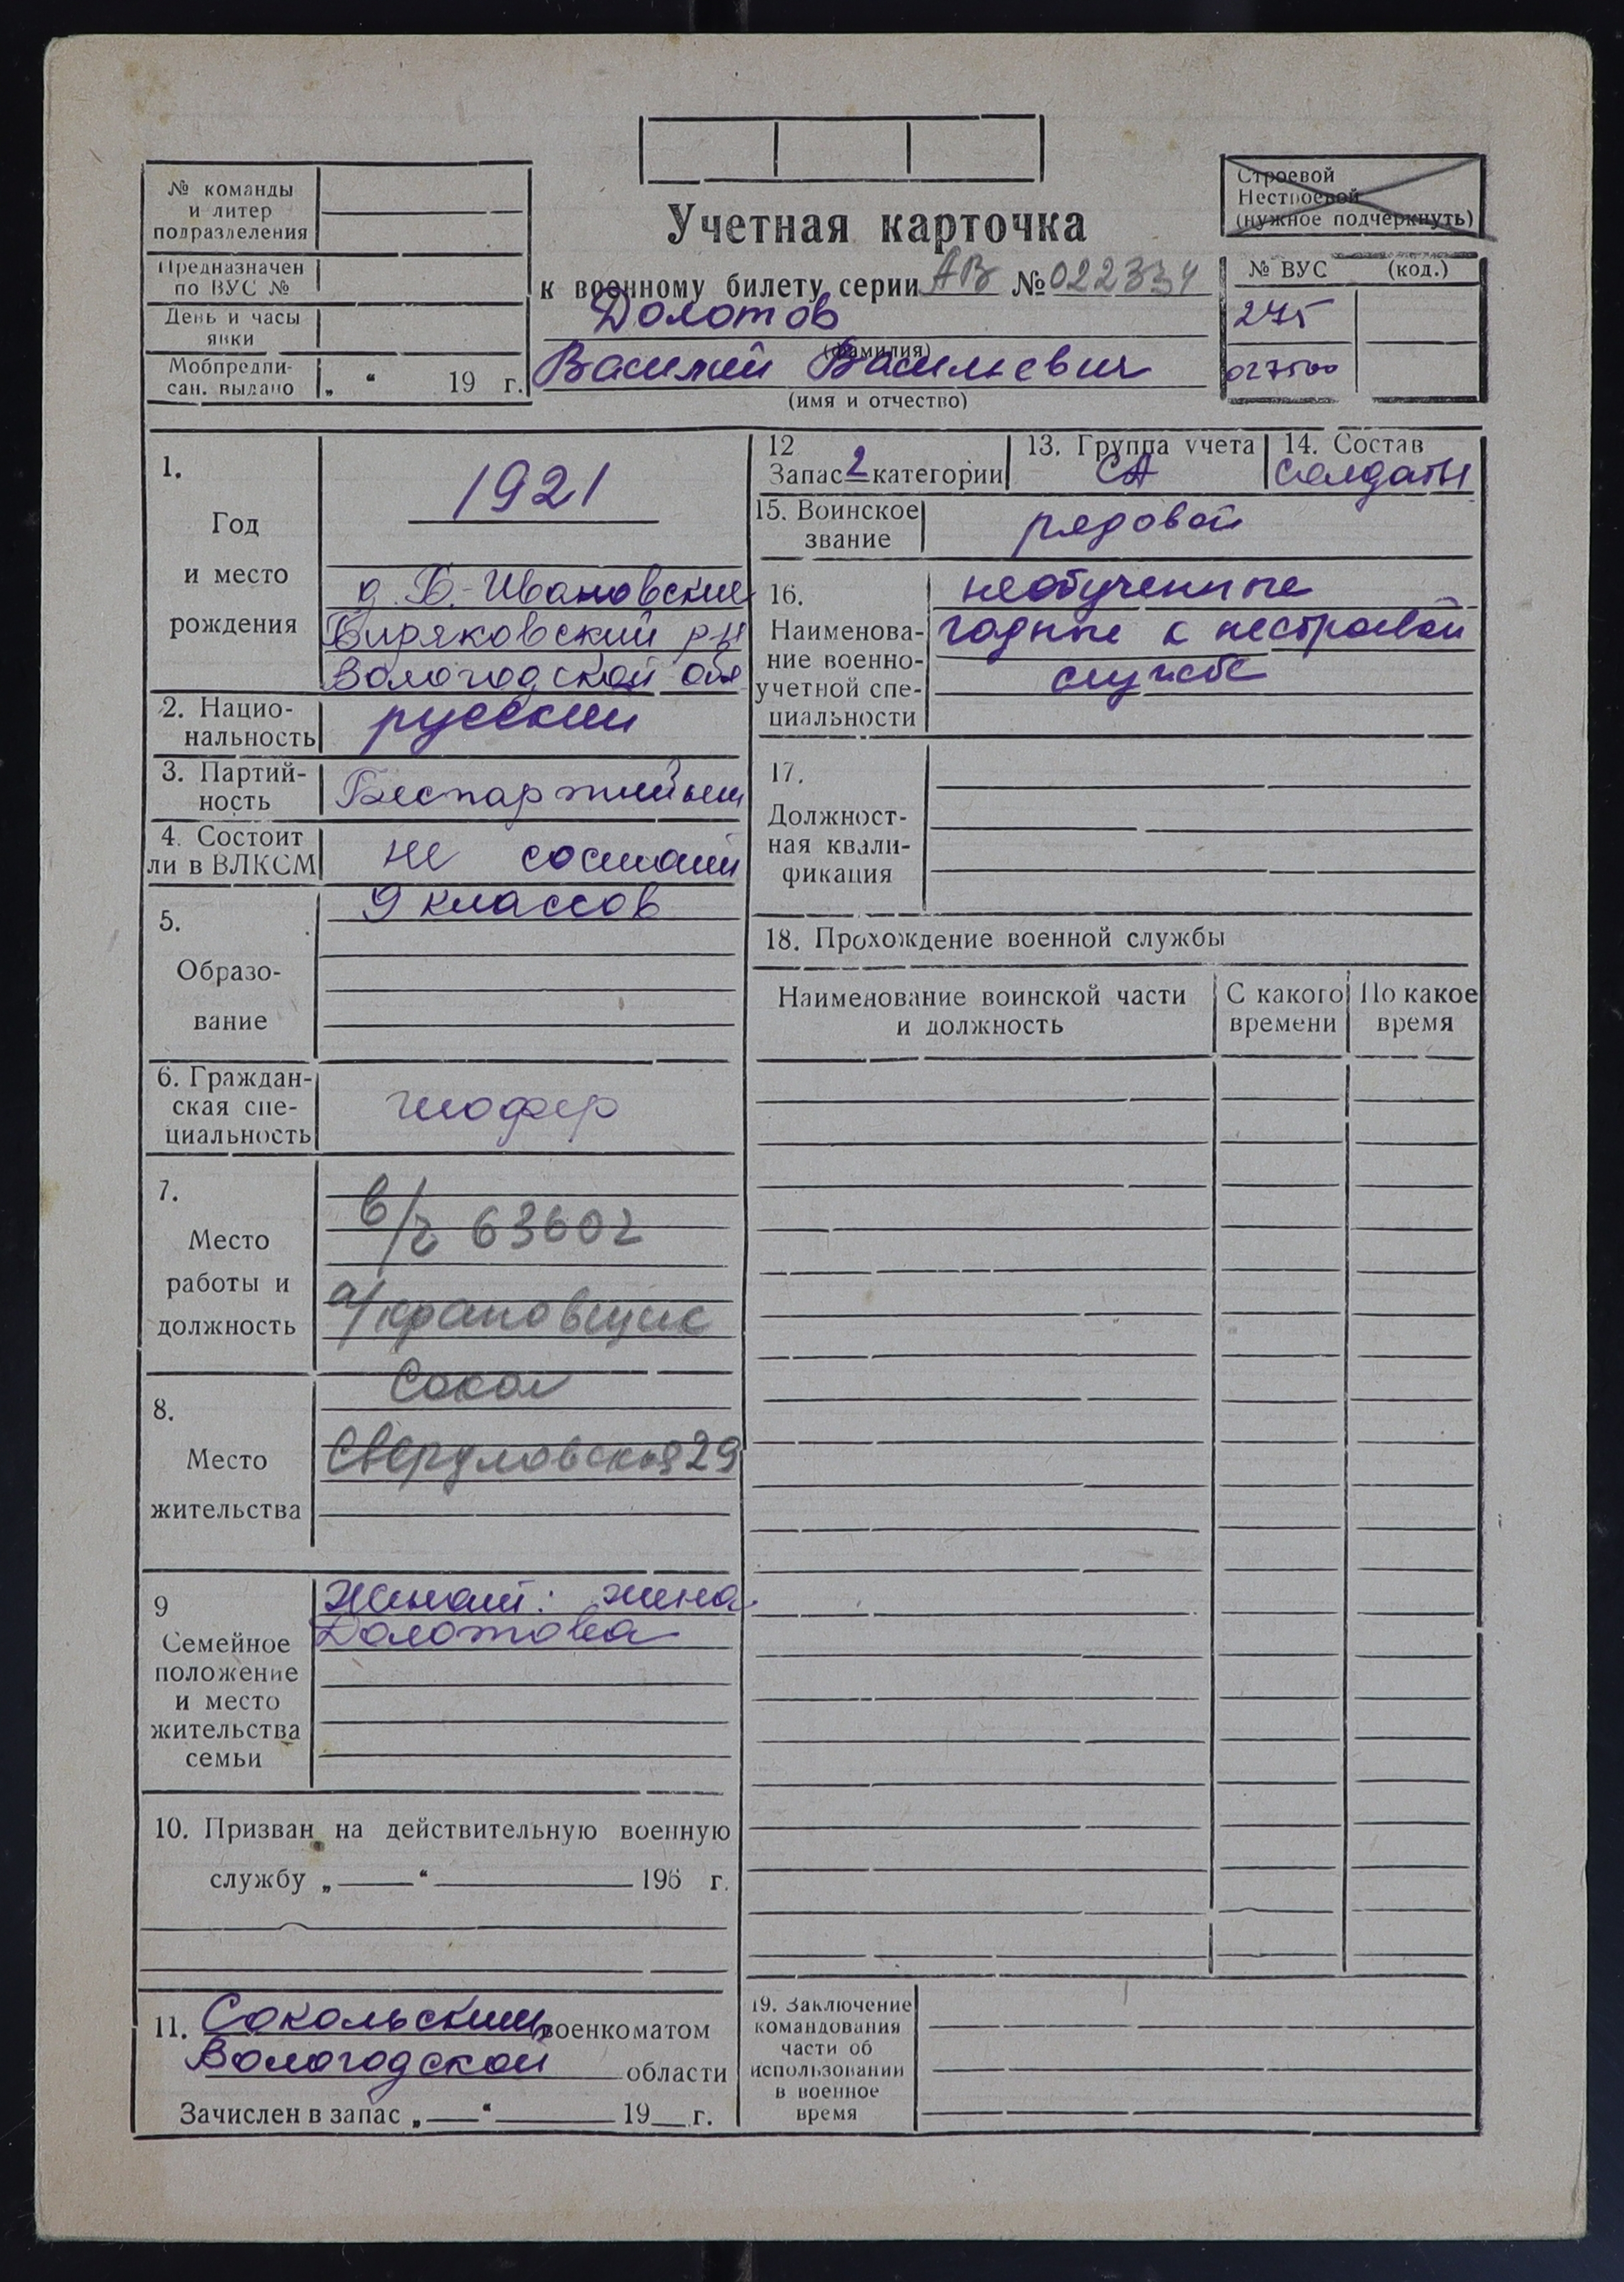 № команды
и литер
подразделения
Предназначен
по ВУС №
День и часы
явки
Мобпредпи-
сан. выдано „ “ 19 г.
Учетная карточка
к военному билету серии АВ № 022334
Долотов
(фамилия)
Василий Васильевич
(имя и отчество)
Строевой
Нестроевой
(нужное подчеркнуть)
№ ВУС (код.)
275
027500
1.
Год
и место
рождения
1921
д. Б.-Ивановские
Биряковский р-н
Вологодской обл
2. Нацио-
нальность
русский
3. Партий-
ность
Беспартийный
4. Состоит
ли в ВЛКСМ
не состоит
5.
Образо-
вание
9 классов
6. Граждан-
ская спе-
циальность
шофер
7.
Место
работы и
должность
в/ч 63602
а/крановщик
8.
Место
жительства
Сокол
Свердловская 29
9
Семейное
положение
и место
жительства
семьи
Женат: жена
Долотова
10. Призван на действительную военную
службу „ “ 196 г.
11. Сокольским военкоматом
Вологодской области
Зачислен в запас „ “ 19 г.
12
Запас 2 категории
13. Группа учета
СА
14. Состав
солдаты
15. Воинское
звание
рядовой
16.
Наименова-
ние военно-
учетной спе-
циальности
необученные
годные к нестроевой
службе
17.
Должност-
ная квали-
фикация
18. Прохождение военной службы
Наименование воинской части
и должность
С какого
времени
По какое
время
19. Заключение
командования
части об
использовании
в военное
время